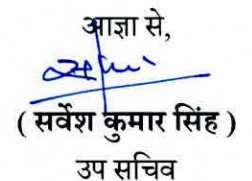 आज्ञा से,
( सर्वेश कुमार सिंह )
उप सचिव